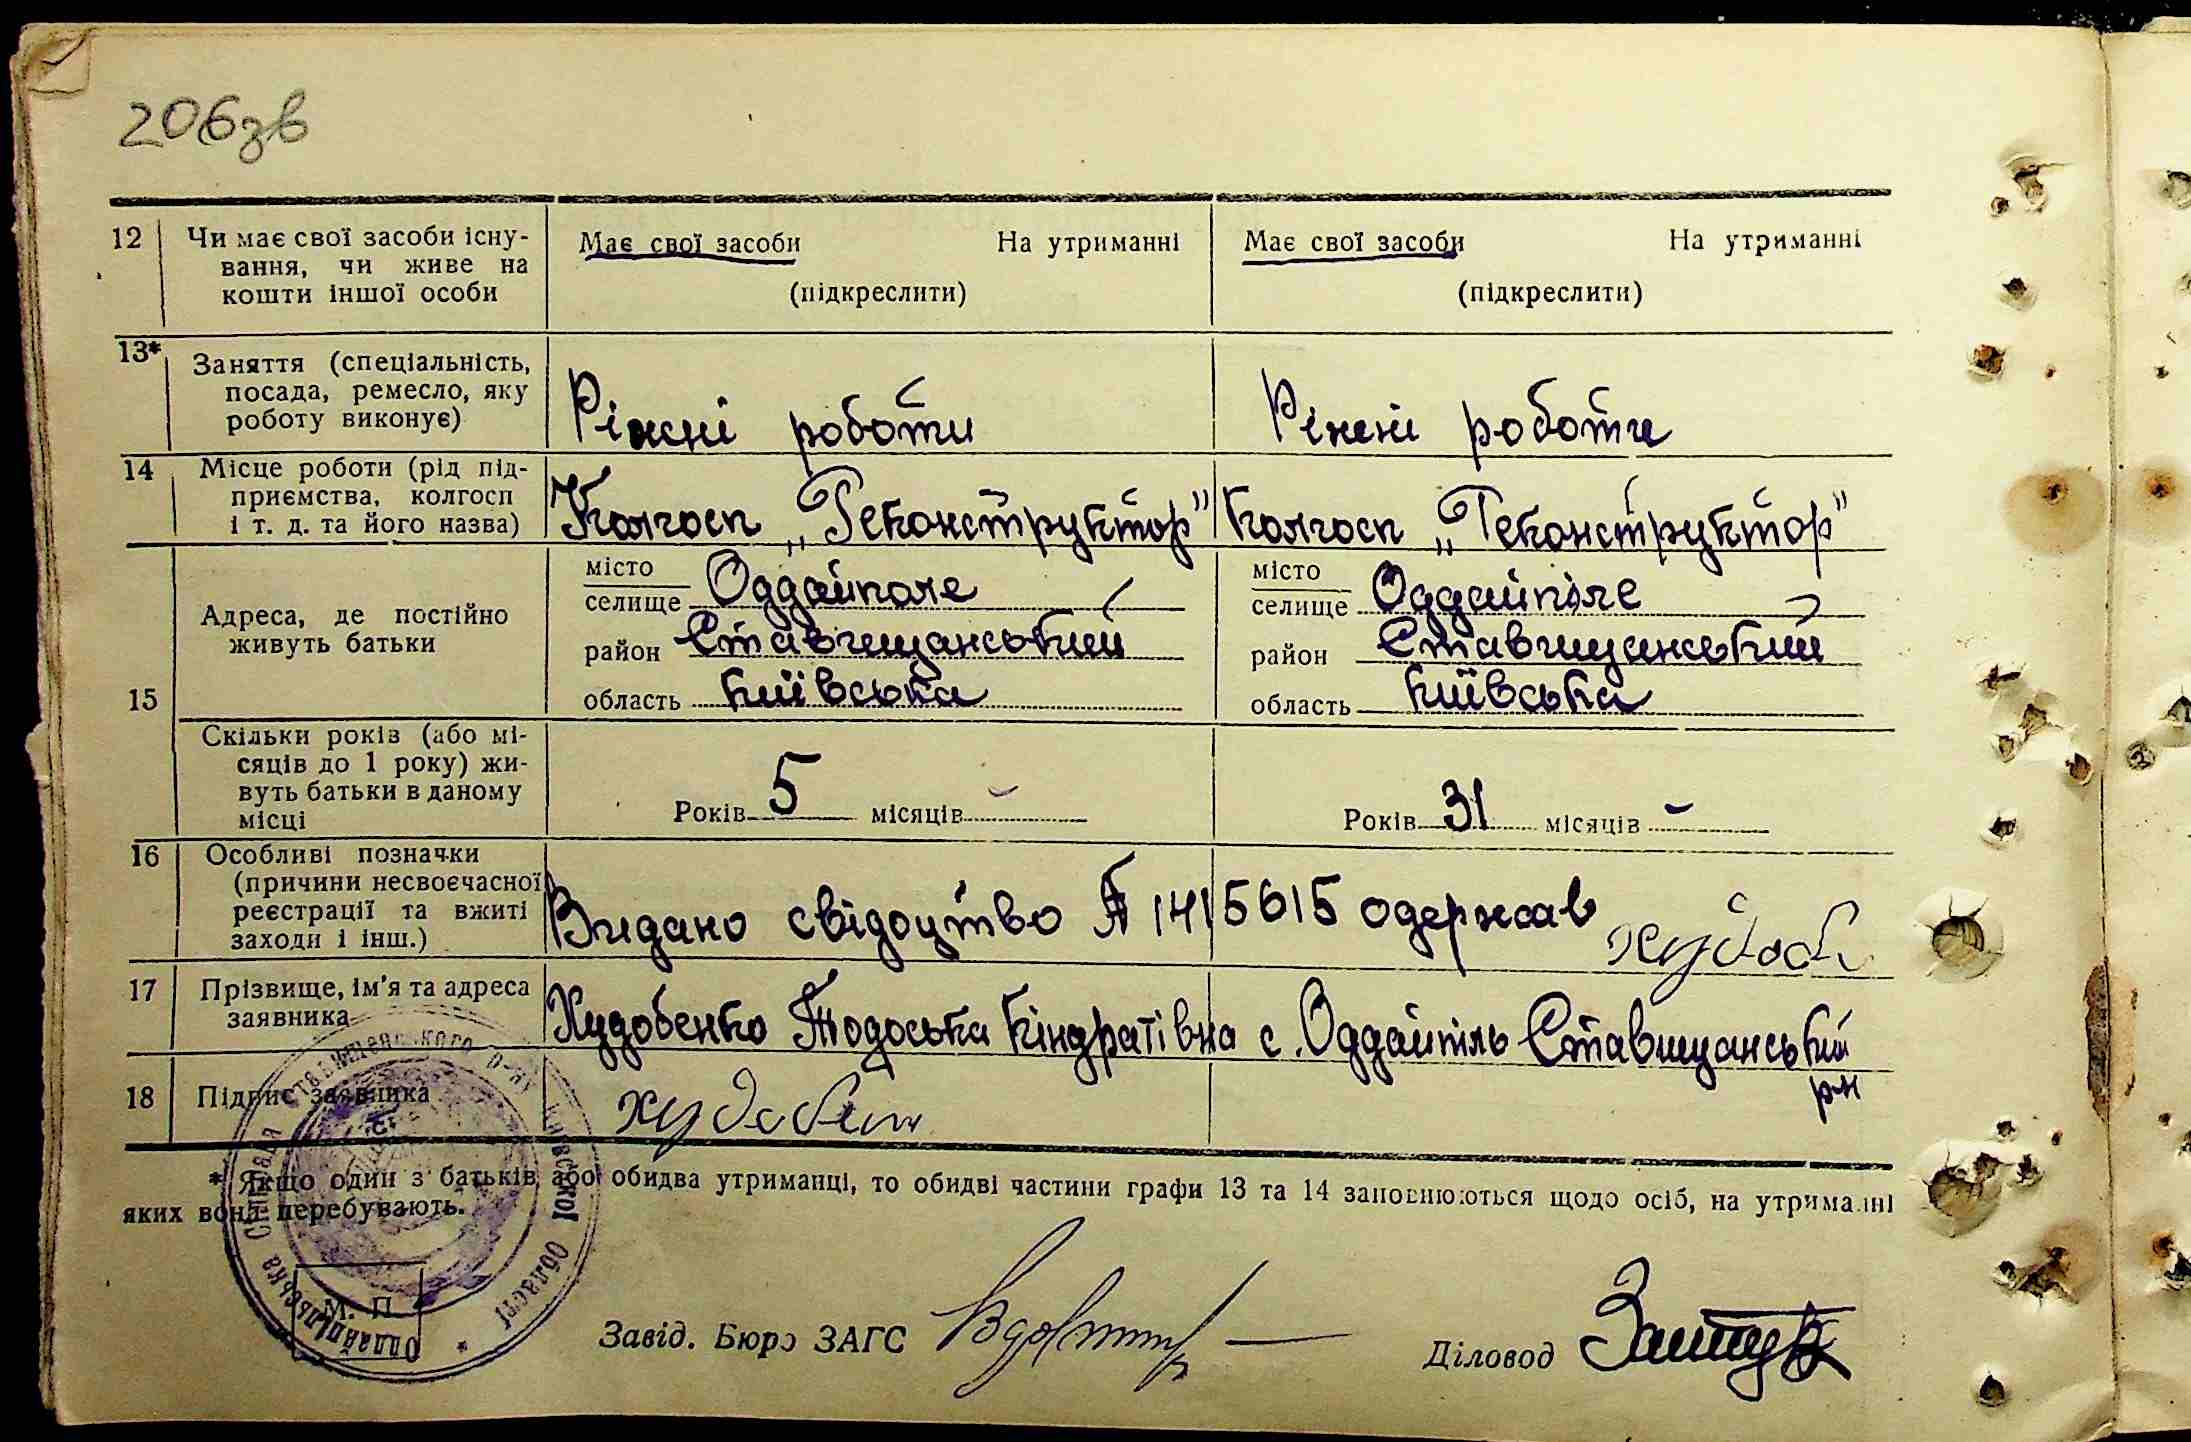 206зв
12 Чи має свої засоби існу-
вання, чи живе на
кошти іншої особи
Має свої засоби На утриманні
(підкреслити)
Має свої засоби На утриманні
(підкреслити)
13* Заняття (спеціальність,
посада, ремесло, яку
роботу виконує)
Ріжні роботи
Ріжні роботи
14 Місце роботи (рід під-
приємства, колгосп
і т. д. та його назва)
Колгосп „Реконструктор"
Колгосп „Реконструктор"
15 Адреса, де постійно
живуть батьки
місто
селище Оддайполе
район Ставищанський
область Київська
місто
селище Оддайполе
район Ставищанський
область Київська
Скільки років (або мі-
сяців до 1 року) жи-
вуть батьки в даному
місці
Років 5 місяців -
Років 31 місяців -
16 Особливі позначки
(причини несвоєчасної
реєстрації та вжиті
заходи і інш.)
Видано свідоцтво № 1415615 одержав
17 Прізвище, ім'я та адреса
заявника
Худобенко Тодоська Кіндратівна с. Оддайпіль Ставищанський
рн
18 Підпис заявника
Худобен
* Якщо один з батьків або обидва утриманці, то обидві частини графи 13 та 14 заповнюються щодо осіб, на утриманні
яких вони перебувають.
М. П.
Завід. Бюро ЗАГС
Діловод